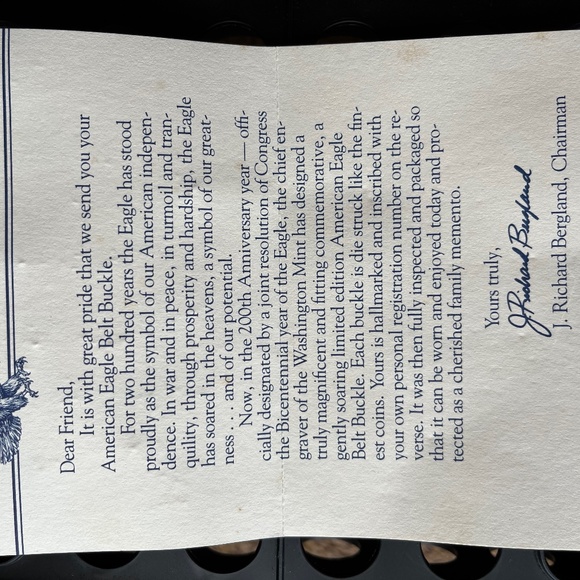 Dear Friend,
It is with great pride that we send you your
American Eagle Belt Buckle.
For two hundred years the Eagle has stood
proudly as the symbol of our American indepen-
dence. In war and in peace, in turmoil and tran-
quility, through prosperity and hardship, the Eagle
has soared in the heavens, a symbol of our great-
ness . . . . and of our potential.
Now, in the 200th Anniversary year — offi-
cially designated by a joint resolution of Congress
the Bicentennial year of the Eagle, the chief en-
graver of the Washington Mint has designed a
truly magnificent and fitting commemorative, a
gently soaring limited edition American Eagle
Belt Buckle. Each buckle is die struck like the fin-
est coins. Yours is hallmarked and inscribed with
your own personal registration number on the re-
verse. It was then fully inspected and packaged so
that it can be worn and enjoyed today and pro-
tected as a cherished family memento.
Yours truly,
J. Richard Bergland
J. Richard Bergland, Chairman